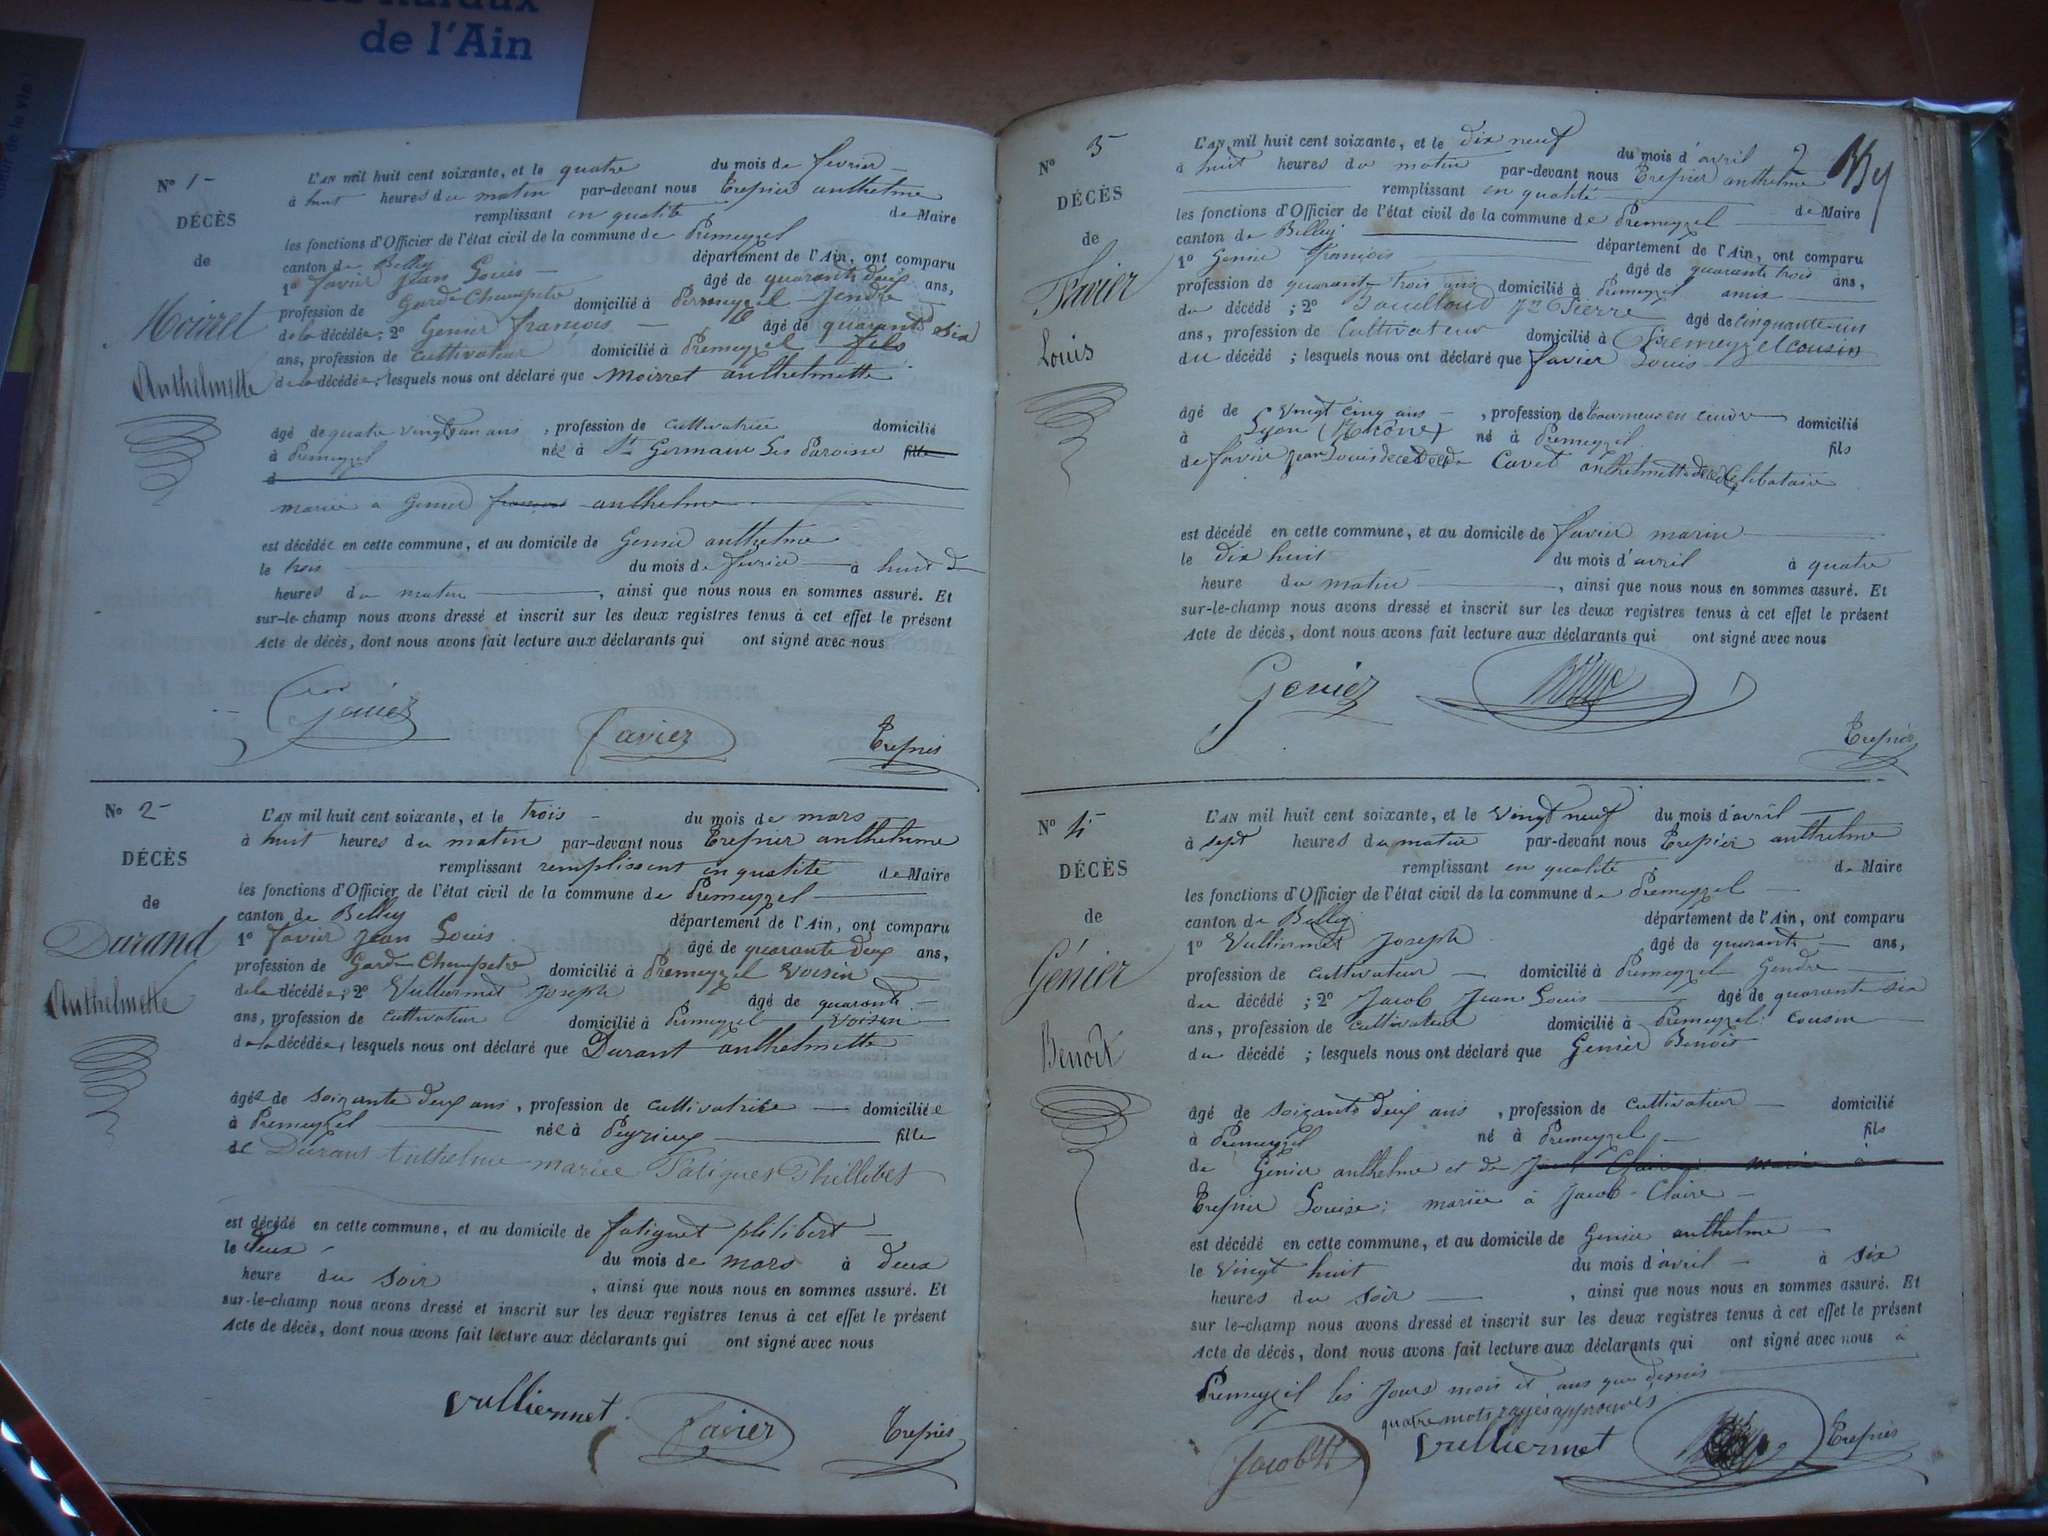 de l'Ain
N° 1
DÉCÈS
de
Moirret
Anthelmette
L'AN mil huit cent soixante, et le quatre du mois de fevrier
à huit heures du matin par-devant nous Trepier anthelme
remplissant en qualité de Maire
les fonctions d'Officier de l'état civil de la commune de Premeyzel
canton de Belley département de l'Ain, ont comparu
1° favier Jean Louis âgé de quarante deux ans,
profession de Garde Champetre domicilié à Premeyzel Gendre
de la décédée; 2° Genier françois âgé de quarante six
ans, profession de cultivateur domicilié à Premeyzel fils
de la décédée; lesquels nous ont déclaré que Moirret anthelmette
âgé de quatre vingt un ans, profession de cultivatrice domicilié
à Premeyzel née à St Germain Les Paroisse fille
d
mariée a Genier françois anthelme
est décédée en cette commune, et au domicile de Genier anthelme
le trois du mois de fevrier à huit
heures du matin, ainsi que nous nous en sommes assuré. Et
sur-le-champ nous avons dressé et inscrit sur les deux registres tenus à cet effet le présent
Acte de décès, dont nous avons fait lecture aux déclarants qui ont signé avec nous
Genier favier Trepier
N° 2
DÉCÈS
de
Durand
Anthelmette
L'AN mil huit cent soixante, et le trois du mois de mars
à huit heures du matin par-devant nous Trepier anthelme
remplissant remplissant en qualité de Maire
les fonctions d'Officier de l'état civil de la commune de Premeyzel
canton de Belley département de l'Ain, ont comparu
1° favier Jean Louis âgé de quarante deux ans,
profession de Garde Champetre domicilié à Premeyzel Voisin
de la décédée; 2° Vulliermet Joseph âgé de quarante
ans, profession de cultivateur domicilié à Premeyzel Voisin
de la décédée, lesquels nous ont déclaré que Durant anthelmette
âgée de soixante deux ans, profession de cultivatrice domiciliée
à Premeyzel née à Peyrieux fille
de Durant Anthelme mariée Fatigues Phillibes
est décédé en cette commune, et au domicile de fatiguet philibert
le deux du mois de mars à deux
heure du soir, ainsi que nous nous en sommes assuré. Et
sur-le-champ nous avons dressé et inscrit sur les deux registres tenus à cet effet le présent
Acte de décès, dont nous avons fait lecture aux déclarants qui ont signé avec nous
Vulliermet favier Trepier
2
N° 3
DÉCÈS
de
Favier
Louis
L'AN mil huit cent soixante, et le dix neuf du mois d'avril
à huit heures du matin par-devant nous Trepier anthelme
remplissant en qualité de Maire
les fonctions d'Officier de l'état civil de la commune de Premeyzel
canton de Belley département de l'Ain, ont comparu
1° Genier françois âgé de quarante trois ans,
profession de quarante trois ans domicilié à Premeyzel amis
du décédé; 2° Pierre âgé de cinquante un
ans, profession de Cultivateur domicilié à Premeyzel cousin
du décédé; lesquels nous ont déclaré que favier Louis
âgé de vingt cinq ans, profession de tourneur en domicilié
à Lyon (Rhône) né à Premeyzel fils
de favier Jean Louis decedé et de Cavet anthelmette Celibataire
est décédé en cette commune, et au domicile de favier marin
le dix huit du mois d'avril à quatre
heure du matin, ainsi que nous nous en sommes assuré. Et
sur-le-champ nous avons dressé et inscrit sur les deux registres tenus à cet effet le présent
Acte de décès, dont nous avons fait lecture aux déclarants qui ont signé avec nous
Genier
Trepier
N° 4
DÉCÈS
de
Génier
Benoît
L'AN mil huit cent soixante, et le vingt neuf du mois d'avril
à sept heures du matin par-devant nous Trepier anthelme
remplissant en qualité de Maire
les fonctions d'Officier de l'état civil de la commune de Premeyzel
canton de Belley département de l'Ain, ont comparu
1° Vulliermet Joseph âgé de quarante ans,
profession de cultivateur domicilié à Premeyzel Gendre
du décédé; 2° Jacob Jean Louis âgé de quarante six
ans, profession de cultivateur domicilié à Premeyzel Cousin
du décédé; lesquels nous ont déclaré que Genier Benoit
âgé de soixante deux ans, profession de cultivateur domicilié
à Premeyzel né à Premeyzel fils
de Genier anthelme et de
Trepier Louise; mariée à Jacob Claire
est décédé en cette commune, et au domicile de Genier anthelme
le vingt huit du mois d'avril à six
heures du soir, ainsi que nous nous en sommes assuré. Et
sur le-champ nous avons dressé et inscrit sur les deux registres tenus à cet effet le présent
Acte de décès, dont nous avons fait lecture aux déclarants qui ont signé avec nous à
Premeyzel les Jours mois et ans que dessus
quatre mots rayés approuvés
Jacob Vulliermet Trepier